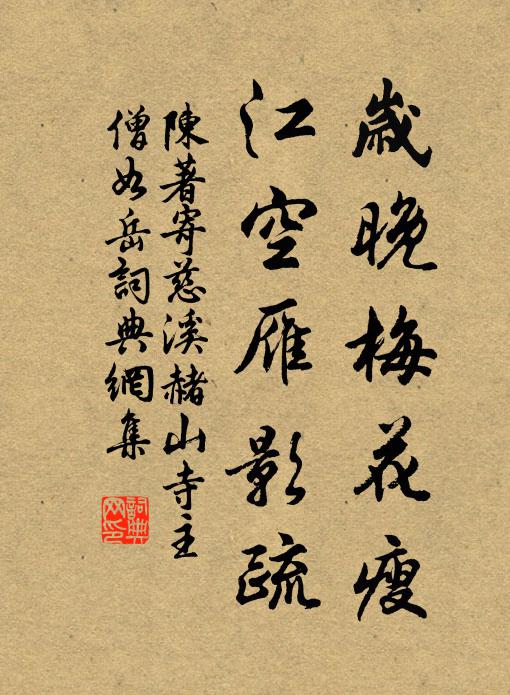 歲晚梅花瘦
江空雁影疏
陳著寄慈溪赭山寺主
僧如岳詞典網集
詞典网印